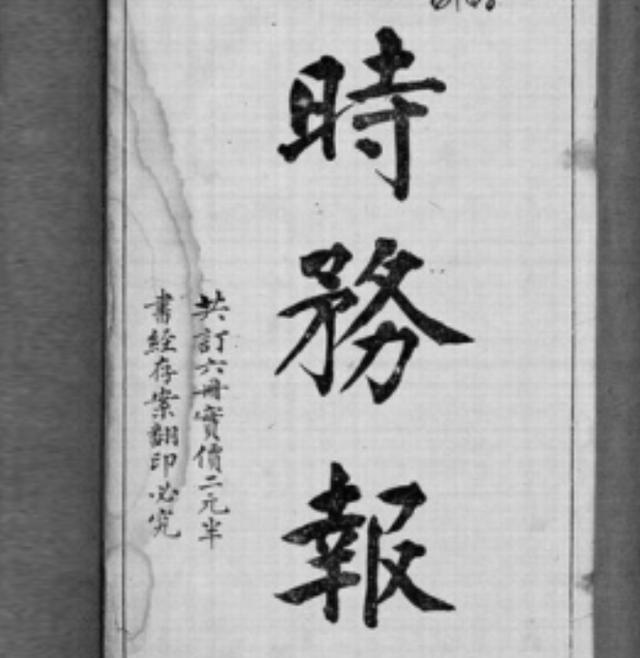 時務報
共訂六冊實價二元半
書經存案翻印必究